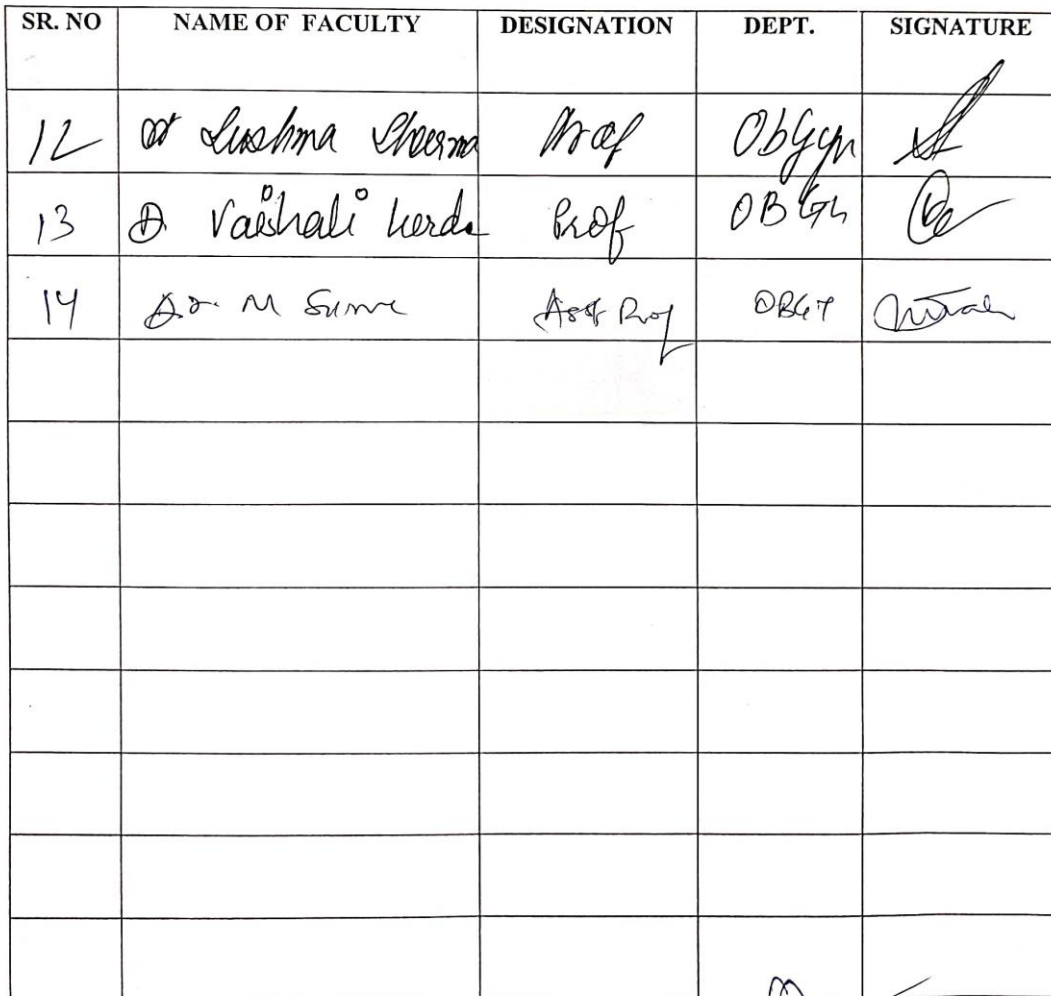 SR. NO NAME OF FACULTY DESIGNATION DEPT. SIGNATURE
12 Dr Sushma Sharma Prof ObGyn
13 Dr Vaishali Prof OBGY
14 Dr M Surve Asst Prof OBGY